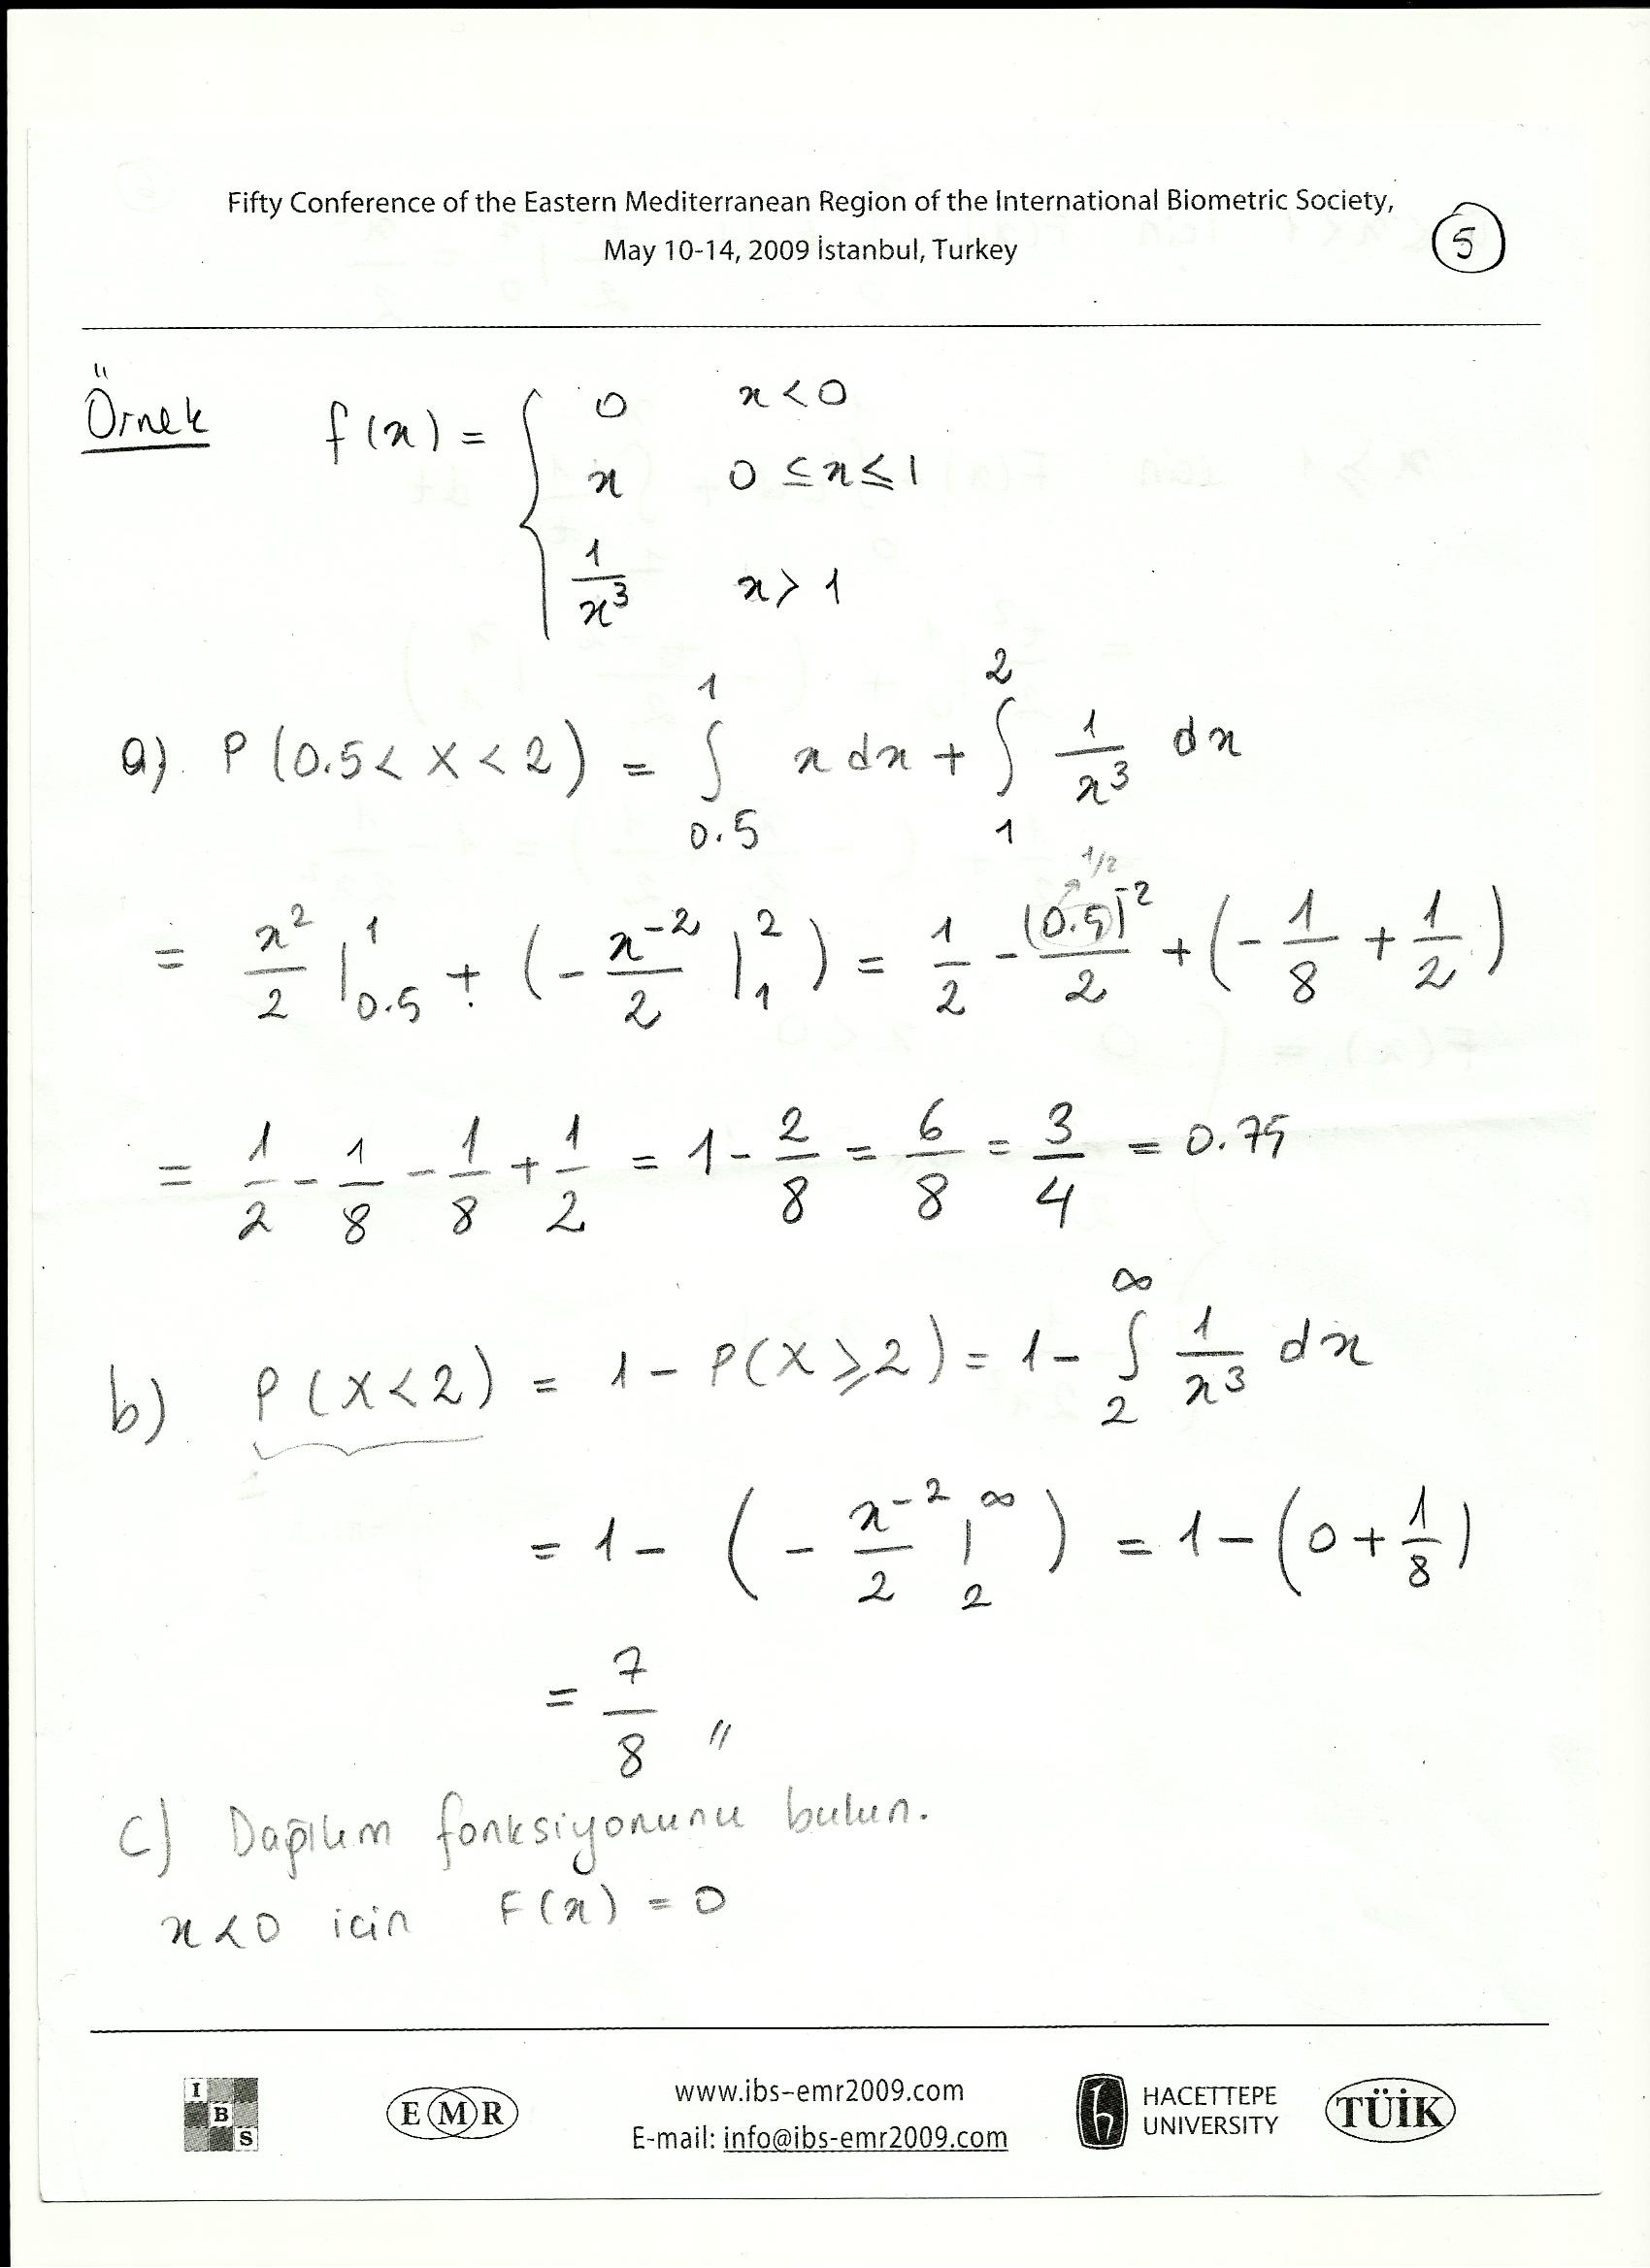 Fifty Conference of the Eastern Mediterranean Region of the International Biometric Society,
May 10-14, 2009 İstanbul, Turkey
5
Örnek f(x) = { 0 x < 0
x 0 ≤ x ≤ 1
1/x³ x > 1
a) P(0.5 < X < 2) = ∫_{0.5}^{1} x dx + ∫_{1}^{2} 1/x³ dx
1/2
= x²/2 |_{0.5}^{1} + (- x⁻²/2 |_{1}^{2}) = 1/2 - (0.5)²/2 + (- 1/8 + 1/2)
= 1/2 - 1/8 - 1/8 + 1/2 = 1 - 2/8 = 6/8 = 3/4 = 0.75
b) P(X < 2) = 1 - P(X ≥ 2) = 1 - ∫_{2}^{∞} 1/x³ dx
= 1 - (- x⁻²/2 |_{2}^{∞}) = 1 - (0 + 1/8)
= 7/8 //
c) Dağılım fonksiyonunu bulun.
x < 0 icin F(x) = 0
I B S
E M R
www.ibs-emr2009.com
E-mail: info@ibs-emr2009.com
HACETTEPE
UNIVERSITY
TÜİK